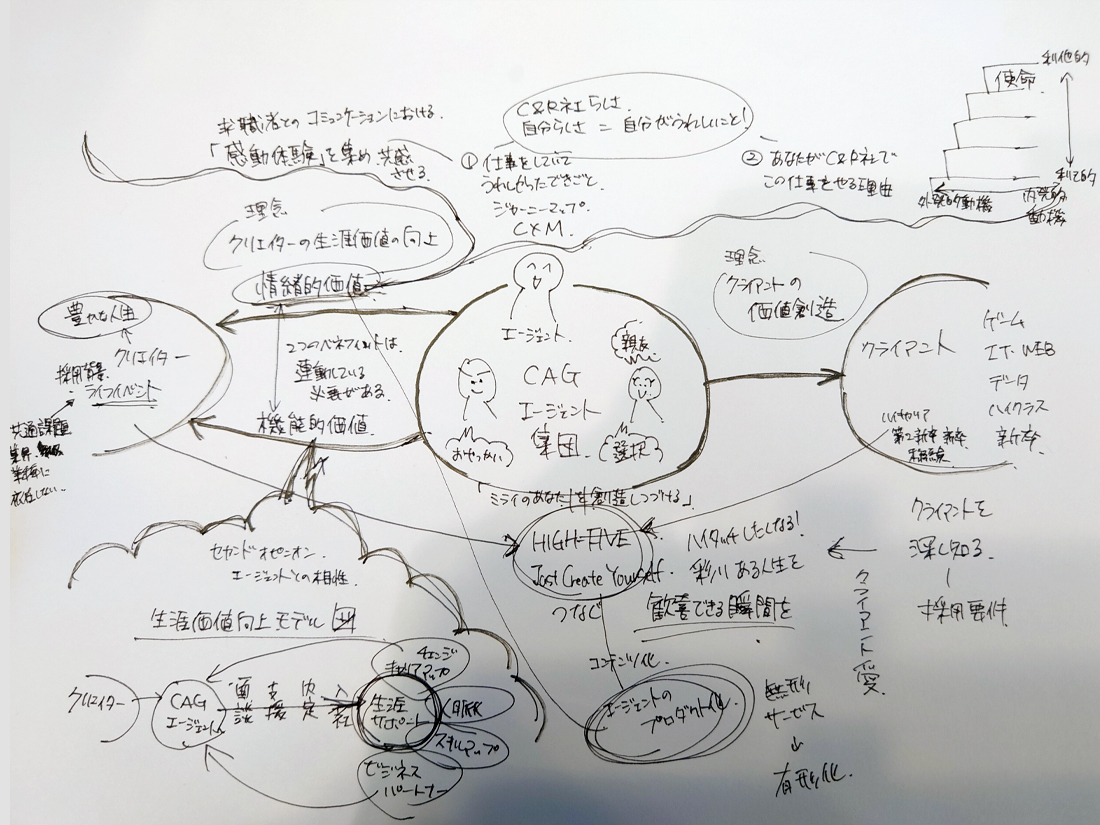 求職者とのコミュニケーションにおける
「感動体験」を集め共感
させる
C&R社らしさ
自分らしさ = 自分がうれしいこと!
① 仕事をしていて
うれしかったできごと
ジャーニーマップ
CXM
② あなたがC&R社で
この仕事をやる理由
利他的
使命
利己的
外発的動機
内発的
動機
理念
クリエイターの生涯価値の向上
情緒的価値
2つのベネフィットは
連動している
必要がある
機能的価値
豊かな人生
クリエイター
採用背景
ライフイベント
共通課題
業界
業種に
依存しない
エージェント
CAG
エージェント
集団
親友
おせっかい
選択
「ミライのあなたを創造しつづける」
理念
クライアントの
価値創造
クライアント
ゲーム
IT・WEB
データ
ハイクラス
新卒
ハイキャリア
第二新卒 新卒
未経験
HIGH-FIVE
Just Create Yourself
つなぐ
ハイタッチしたくなる!
彩りある人生を
歓喜できる瞬間を
クライアントを
深く知る
採用要件
クライアント愛
コンテンツ化
エージェントの
プロダクト化
無形
サービス
有形化
セカンドオピニオン
エージェントとの相性
生涯価値向上モデル図
クリエイター
CAG
エージェント
面談
支援
内定
入社
生涯
サポート
チェンジ
キャリアアップ
人脈
スキルアップ
ビジネス
パートナー